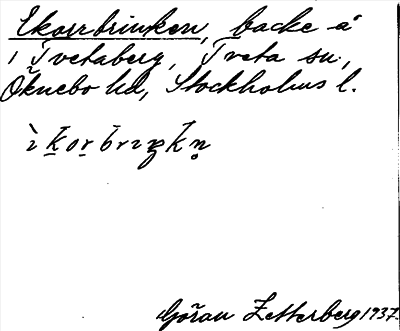 Ekorrbrinken, backe å
i Tvetaberg, Tveta sn,
Öknebo hd, Stockholms l.
Göran Zetterberg 1937.